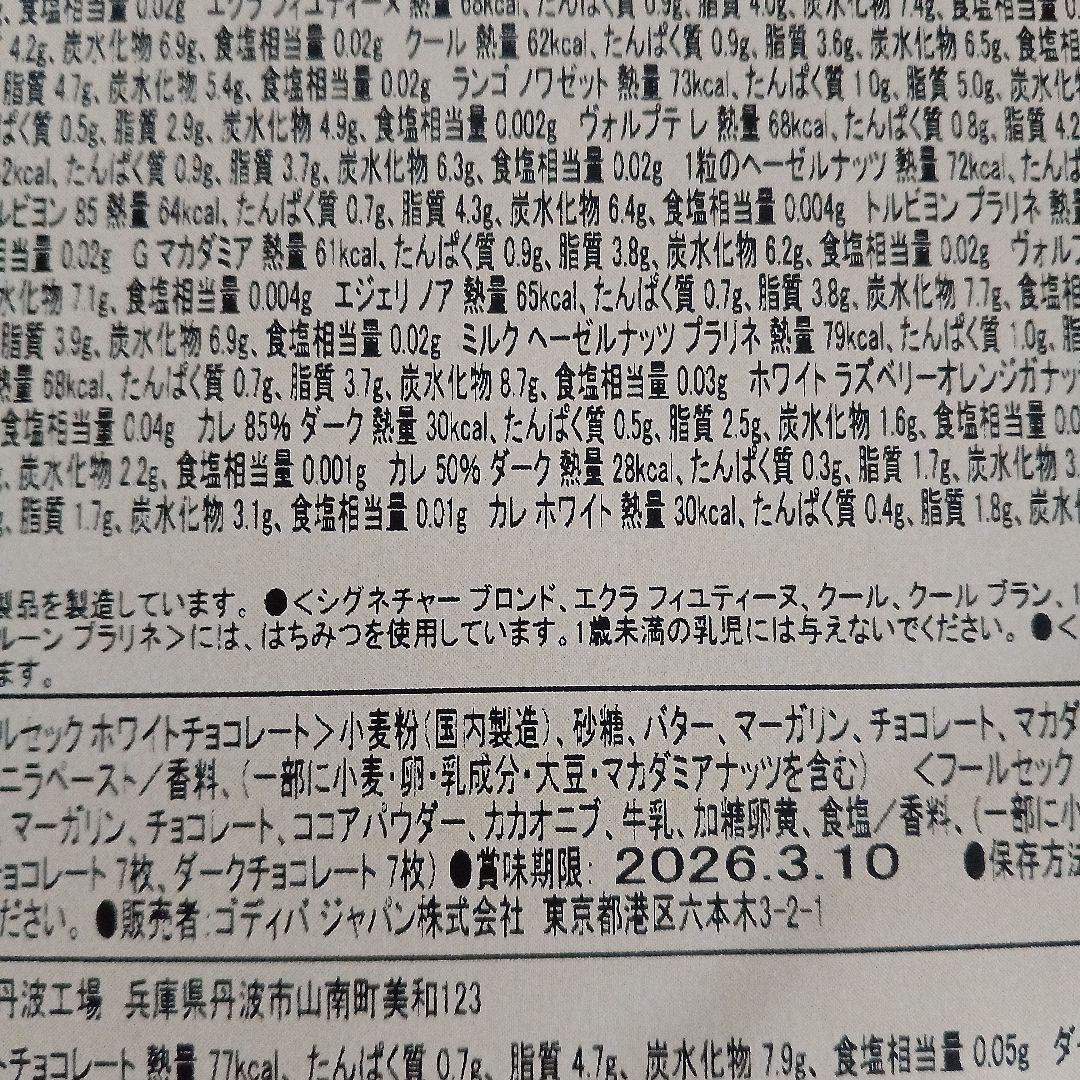 食塩相当量 0.02g エクラ フィユティーヌ 熱量 68kcal、たんぱく質 0.9g、脂質 4.0g、炭水化物 7.4g、食塩相当量
4.2g、炭水化物 6.9g、食塩相当量 0.02g クール 熱量 62kcal、たんぱく質 0.9g、脂質 3.6g、炭水化物 6.5g、食塩相
脂質 4.7g、炭水化物 5.4g、食塩相当量 0.02g ランゴ ノワゼット 熱量 73kcal、たんぱく質 1.0g、脂質 5.0g、炭水化物
ぱく質 0.5g、脂質 2.9g、炭水化物 4.9g、食塩相当量 0.002g ヴォルプテ レ 熱量 68kcal、たんぱく質 0.8g、脂質 4.2
2kcal、たんぱく質 0.9g、脂質 3.7g、炭水化物 6.3g、食塩相当量 0.02g 1粒のヘーゼルナッツ 熱量 72kcal、たんぱ
ルビヨン 85 熱量 64kcal、たんぱく質 0.7g、脂質 4.3g、炭水化物 6.4g、食塩相当量 0.004g トルビヨン プラリネ 熱量
相当量 0.02g G マカダミア 熱量 61kcal、たんぱく質 0.9g、脂質 3.8g、炭水化物 6.2g、食塩相当量 0.02g ヴォルプ
水化物 7.1g、食塩相当量 0.004g エジェリ ノア 熱量 65kcal、たんぱく質 0.7g、脂質 3.8g、炭水化物 7.7g、食塩相
脂質 3.9g、炭水化物 6.9g、食塩相当量 0.02g ミルク ヘーゼルナッツ プラリネ 熱量 79kcal、たんぱく質 1.0g、脂
熱量 68kcal、たんぱく質 0.7g、脂質 3.7g、炭水化物 8.7g、食塩相当量 0.03g ホワイト ラズベリーオレンジガナッ
食塩相当量 0.04g カレ 85% ダーク 熱量 30kcal、たんぱく質 0.5g、脂質 2.5g、炭水化物 1.6g、食塩相当量 0.0
g、炭水化物 2.2g、食塩相当量 0.001g カレ 50% ダーク 熱量 28kcal、たんぱく質 0.3g、脂質 1.7g、炭水化物 3.
、脂質 1.7g、炭水化物 3.1g、食塩相当量 0.01g カレ ホワイト 熱量 30kcal、たんぱく質 0.4g、脂質 1.8g、炭水
製品を製造しています。●<シグネチャー ブロンド、エクラ フィユティーヌ、クール、クール ブラン、1
ルーン プラリネ>には、はちみつを使用しています。1歳未満の乳児には与えないでください。●<
ます。
ルセック ホワイトチョコレート>小麦粉(国内製造)、砂糖、バター、マーガリン、チョコレート、マカダ
ニラペースト/香料、(一部に小麦・卵・乳成分・大豆・マカダミアナッツを含む) <フールセック
マーガリン、チョコレート、ココアパウダー、カカオニブ、牛乳、加糖卵黄、食塩/香料、(一部に小
ョコレート 7枚、ダークチョコレート 7枚) ●賞味期限: 2026.3.10 ●保存方法
ださい。●販売者:ゴディバ ジャパン株式会社 東京都港区六本木3-2-1
丹波工場 兵庫県丹波市山南町美和123
トチョコレート 熱量 77kcal、たんぱく質 0.7g、脂質 4.7g、炭水化物 7.9g、食塩相当量 0.05g ダー